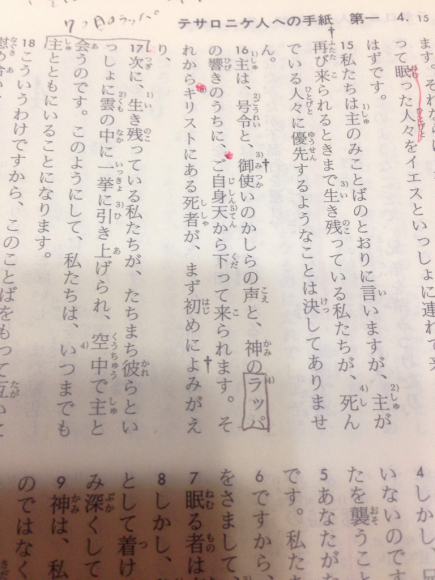 テサロニケ人への手紙 第一 4. 15
7つ目のラッパ
って眠った人々をイエスといっしょに連れて
はずです。
15 私たちは主のみことばのとおりに言いますが、主が
再び来られるときまで生き残っている私たちが、死ん
でいる人々に優先するようなことは決してありませ
ん。
16 主は、号令と、御使いのかしらの声と、神のラッパ
の響きのうちに、ご自身天から下って来られます。そ
れからキリストにある死者が、まず初めによみがえ
り、
17 次に、生き残っている私たちが、たちまち彼らとい
っしょに雲の中に一挙に引き上げられ、空中で主と
会うのです。このようにして、私たちは、いつまでも
主とともにいることになります。
18 こういうわけですから、このことばをもって互いに
4 しかし、
いないのです
たを襲うこ
5 あなたが
です。私た
6 ですから、
をさまして、
7 眠る者は
8 しかし、
として着け
み深くして
9 神は、私
のではなく